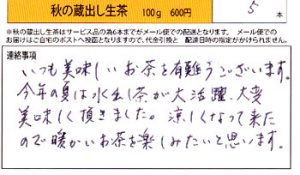 秋の蔵出し生茶 100g 600円 5 本
※秋の蔵出し生茶はサービス品の為6本までがメール便での配送となります。 メール便での
お届けはご自宅のポストへ投函となりますので、代金引換と 配達日時の指定がかけられません。
連絡事項
いつも美味しいお茶を有難うございます。
今年の夏は水出し茶が大活躍、大変
美味しく頂きました。涼しくなって来た
ので暖かいお茶を楽しみたいと思います。